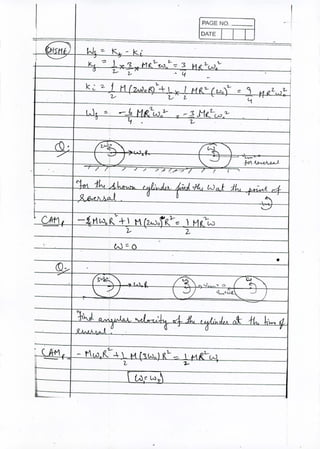 PAGE NO.
DATE
COMIME
W_f = K_f - K_i
K_f = 1/2 × 3/2 × MR²ω₀² = 3/4 MR²ω₀²
K_i = 1/2 M(2ω₀R)² + 1/2 × 1/2 MR²(ω₀)² = 9/4 MR²ω₀²
W_f = -6/4 MR²ω₀² = -3/2 MR²ω₀²
Q:-
ω₀R
for reversal
"For the shown cylinder find the ω at the point of
Reversal.
CAM_P
-1/2 Mω₀R² + 1/2 M(2ω₀)R² = 1/2 MR²ω
ω = 0
Q:-
ω₀R
Find angular velocity of the cylinder at the time of
reversal.
CAM_P
- Mω₀R² + 1/2 M(3ω₀)R² = 1/2 MR²ω
ω = ω₀